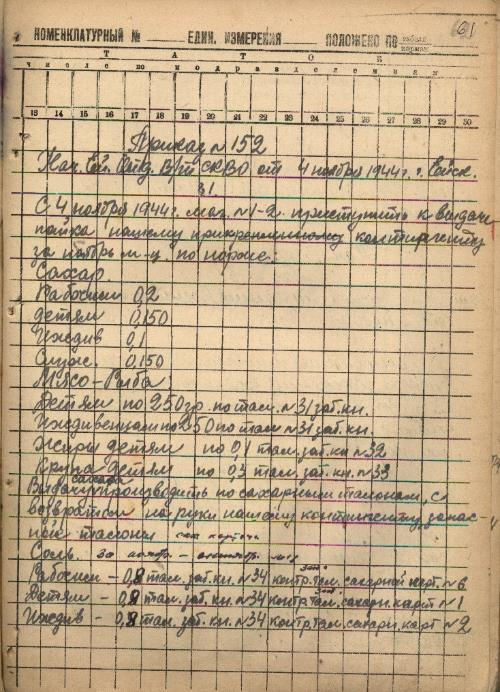 161
НОМЕНКЛАТУРНЫЙ № ЕДИН. ИЗМЕРЕНИЯ ПОЛОЖЕНО ПО табелю
нормам
Т А Т О К
числе по подразделениям
13 14 15 16 17 18 19 20 21 22 23 24 25 26 27 28 29 30
Приказ № 152
Нач. Ей. Отд. В/т СКВО от 4 ноября 1944 г. г. Ейск.
§1
С 4 ноября 1944 г. маг. №1-2 приступить к выдачи
пайка нашему прикрепленному контингенту
за ноябрь м-ц. по норме:
Сахар
Рабочим 0,2
детям 0,150
Иждив 0,1
Служ. 0,150
Мясо-Рыба:
Детям по 250 гр. по тал. №31 заб. кн.
Иждивенцам по 250 по тал №31 заб. кн.
Жиры детям по 0,1 тал. заб. кн №32
Крупа детям по 0,3 тал. заб. кн. №33
Выдачу сахара производить по сахарным талонам, с
возвратом на руки нашему контингенту запас-
ной талоны
Соль. за
Рабочим - 0,8 тал. заб. кн. №34 контр. тал. сахарной карт. №6
Детям - 0,8 тал. заб. кн. №34 контр. тал. сахарн. карт №1
Иждив - 0,8 тал. заб. кн. №34 контр. тал. сахарн. карт №2